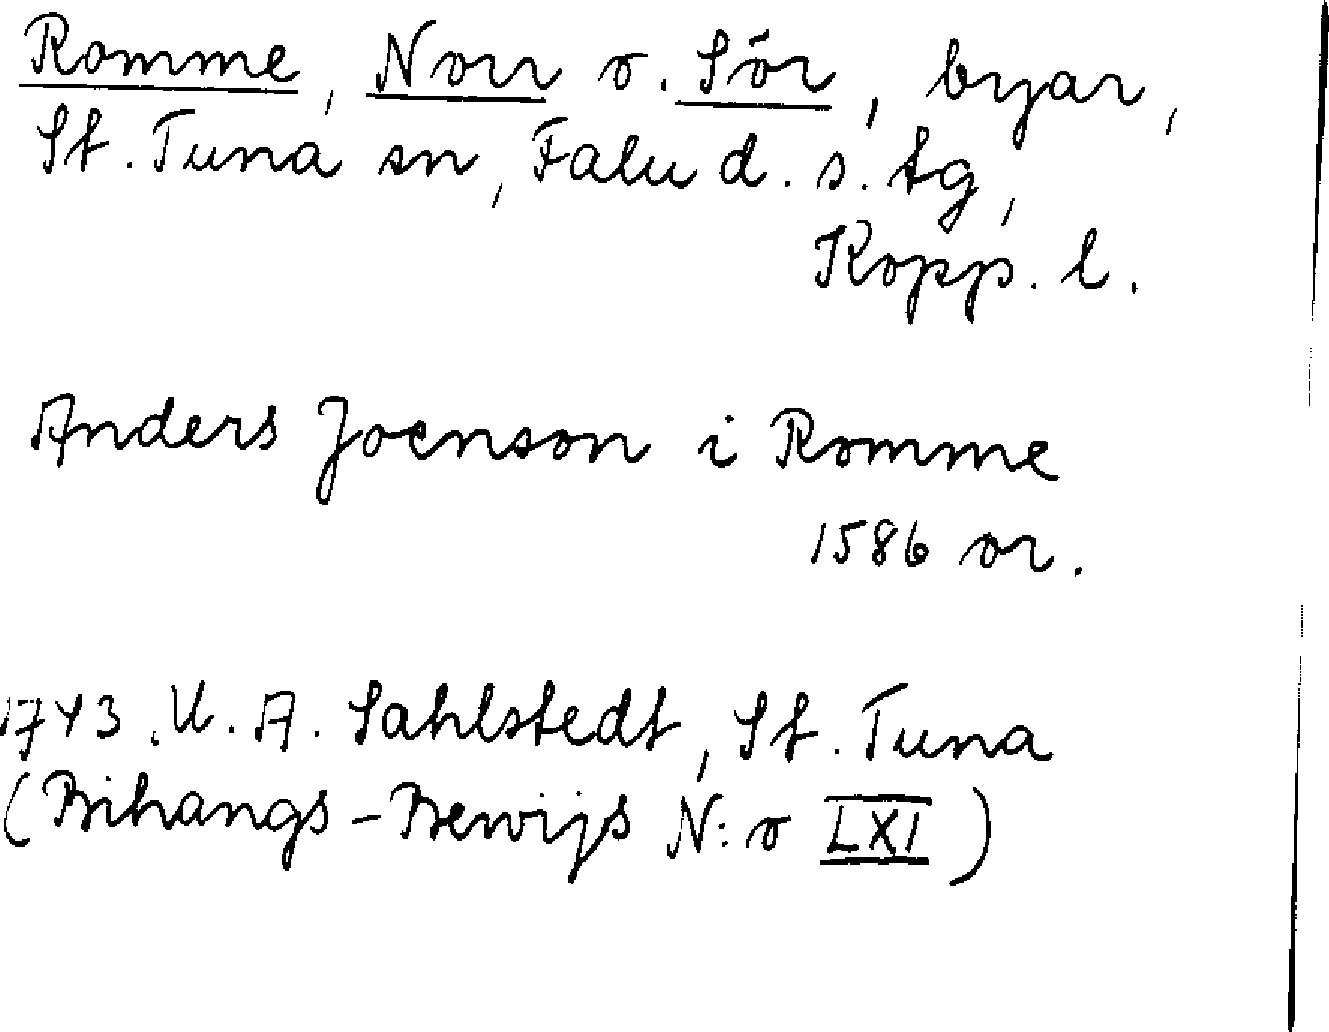 Romme, Norr o. Sör, byar,
St. Tuna sn, Falu d. s. tg,
Kopp. l.
Anders Joenson i Romme
1586 or.
1743. U. A. Sahlstedt, St. Tuna
(Bihangs-Bewijs N:o LXI)